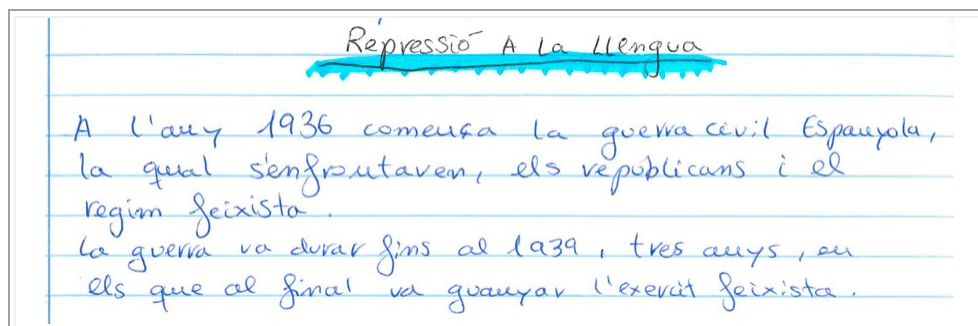 Repressió A La Llengua
A l'any 1936 comença la guerra civil Espanyola,
la qual s'enfrontaven, els republicans i el
regim feixista.
La guerra va durar fins al 1939, tres anys, en
els que al final va guanyar l'exercit feixista.